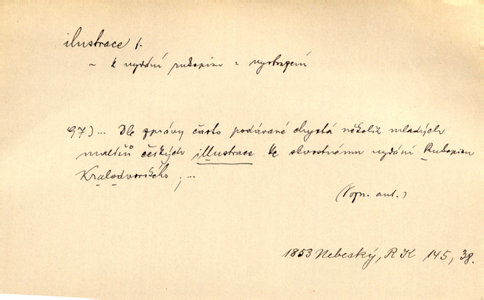 ilustrace 1.
~ k vydání rukopisu
97) ... Dle zprávy často podávané chystá několik mladých
malířů českých illustrace ke skvostnému vydání Rukopisu
Kralodvorského; ...
(Pozn. aut.)
1853 Nebeský, RK 145, 38.